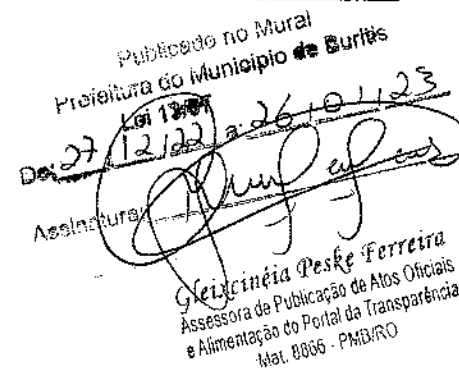 Publicado no Mural
Prefeitura do Município de Buritis
Lei
De: 27/12/22 a: 26/01/23
Assinatura:
Gleiscinéia Peske Ferreira
Assessora de Publicação de Atos Oficiais
e Alimentação do Portal da Transparência
Mat. 8866 - PMB/RO